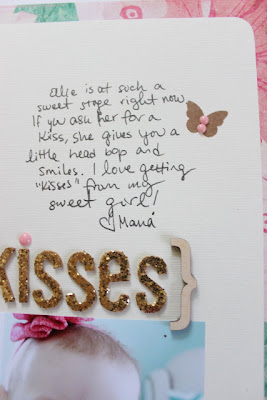 Ellie is at such a
sweet stage right now.
If you ask her for a
kiss, she gives you a
little head bop and
smiles. I love getting
"kisses" from my
sweet girl!
♡ Mamá
kisses}